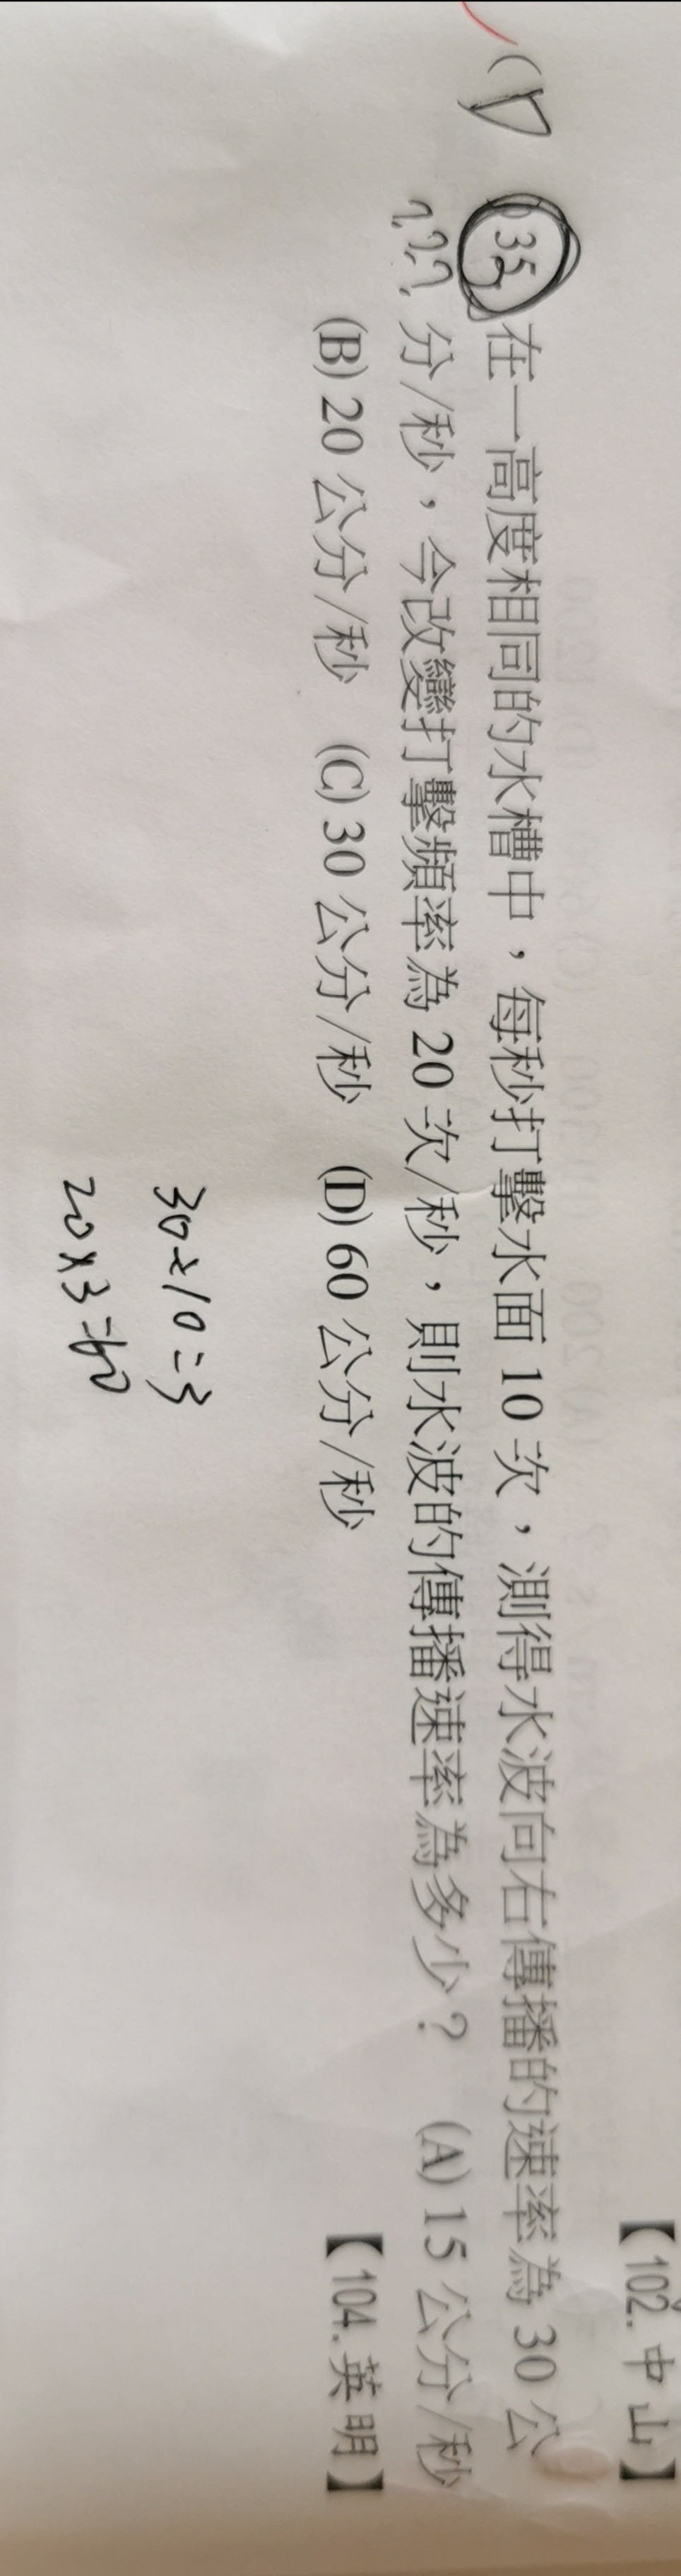 【102.中山】
(D) 35. 在一高度相同的水槽中，每秒打擊水面 10 次，測得水波向右傳播的速率為 30 公
??? 分/秒，今改變打擊頻率為 20 次/秒，則水波的傳播速率為多少？ (A) 15 公分/秒
(B) 20 公分/秒 (C) 30 公分/秒 (D) 60 公分/秒 【104.英明】
30÷10=3
20×3=60